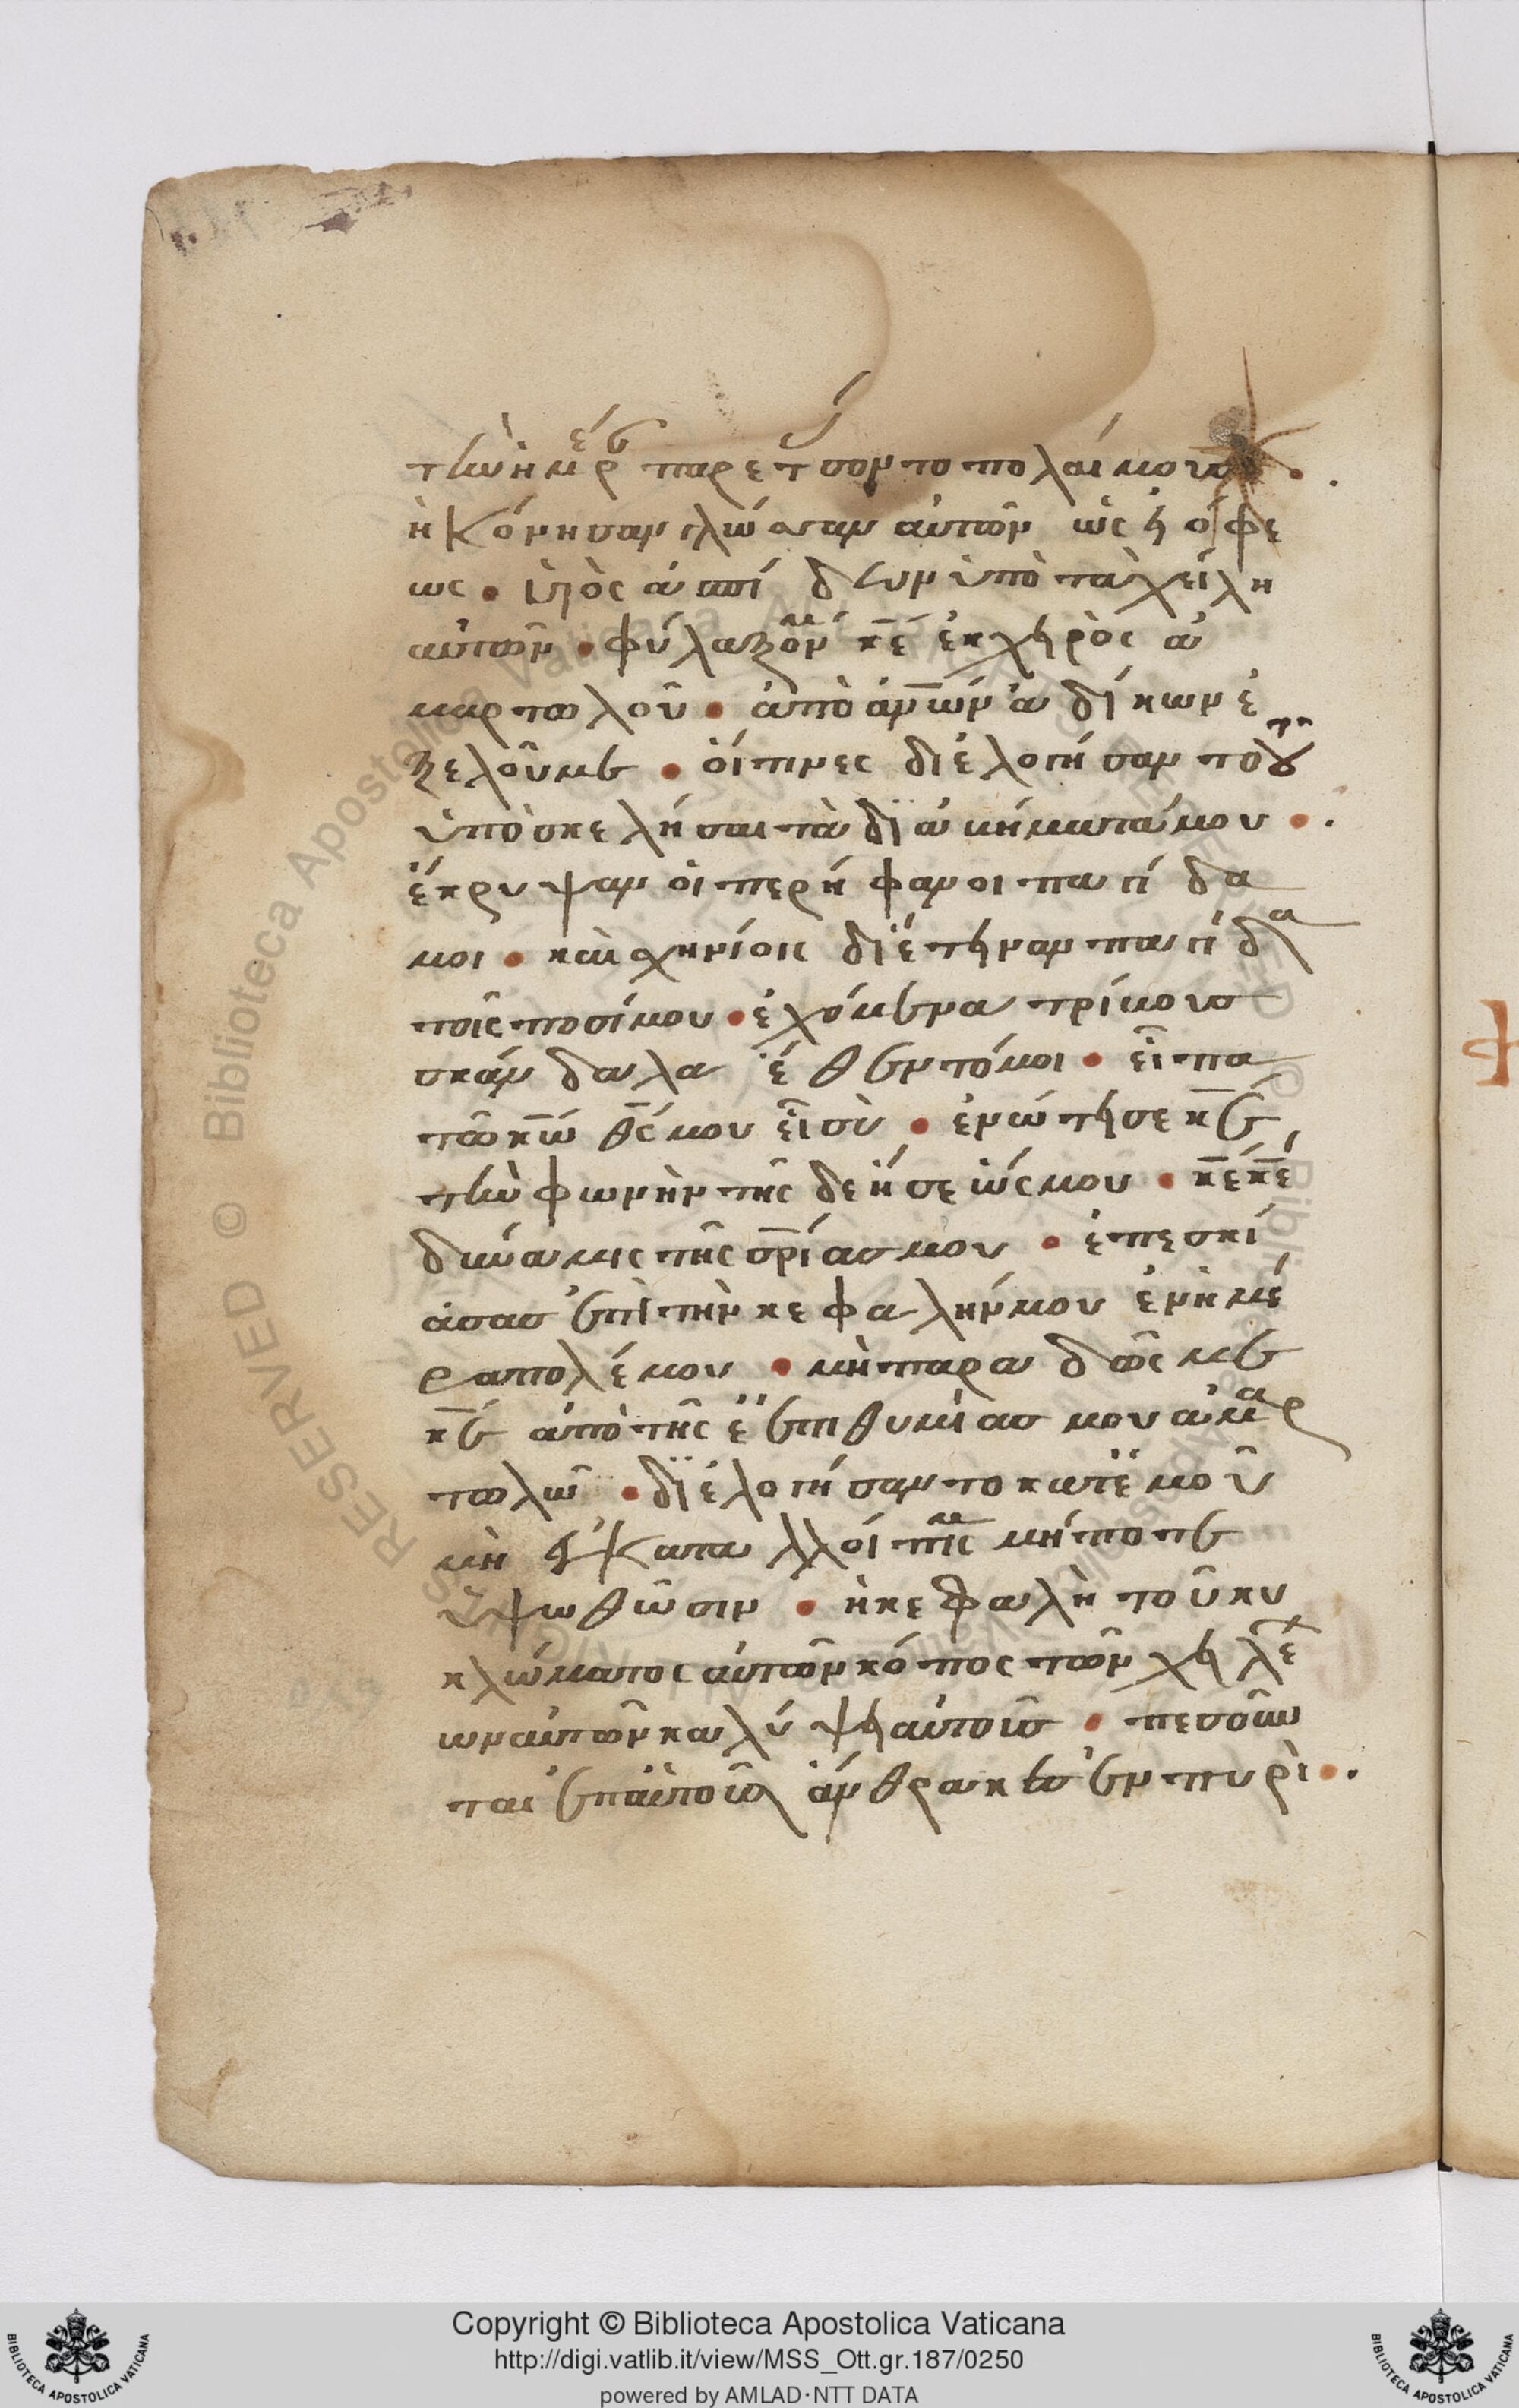 τὴν ἡμέρ παρετάσσοντο πολαίμουσ.
ἠκόνησαν γλώσσαν αὐτῶν ὡς ει ὄφε
ως. ϊὸς ἀσπίδων ὑπὸ τὰ χείλη
αὐτῶν. φύλαξόν με κε ἐκ χειρὸς ἁ
μαρτωλοῦ. ἀπὸ ἀνων ἀδίκων ἐ
ξελοῦ με. οἵτινες διελογήσαν τοῦ
ὑποσκελῆσαι τὰ διακήματά μου.
ἔκρυψαν οι περήφανοι παγίδα
μοι. καὶ σχηνίοις διέτειναν παγίδα
τοῖς ποσί μου. ἐχόμενα τρίμουσ
σκάνδαλα ἔθεντό μοι. εἶπα
τῶ κω θς μου εἶ σὺ. ἐνώτησε κε
τὴν φωνὴν τῆς δεήσεώς μου. κε κε
δύναμις τῆς σριασ μου. ἐπεσκί
ασασ ἐπὶ τὴν κεφαλήν μου ἐν ἡμέ
ρα πολέμου. μὴ παραδῶς με
κε ἀπὸ τῆς ἐπιθυμίασ μου ἁμαρ
τωλῶ. διελογήσαντο κατ ἐμοῦ
μὴ ἐγκαταλλοίπης με μήποτε
ὑψωθῶσιν. ἡ κεφαλὴ τοῦ κυ
κλώματος αὐτῶν κόπος τῶν χειλέ
ων αὐτῶν καλύψει αὐτοῦσ. πεσοῦν
ται ἐπ αὐτοὺς ἄνθρακεσ ἐν πυρὶ.
Copyright © Biblioteca Apostolica Vaticana
http://digi.vatlib.it/view/MSS_Ott.gr.187/0250
powered by AMLAD·NTT DATA